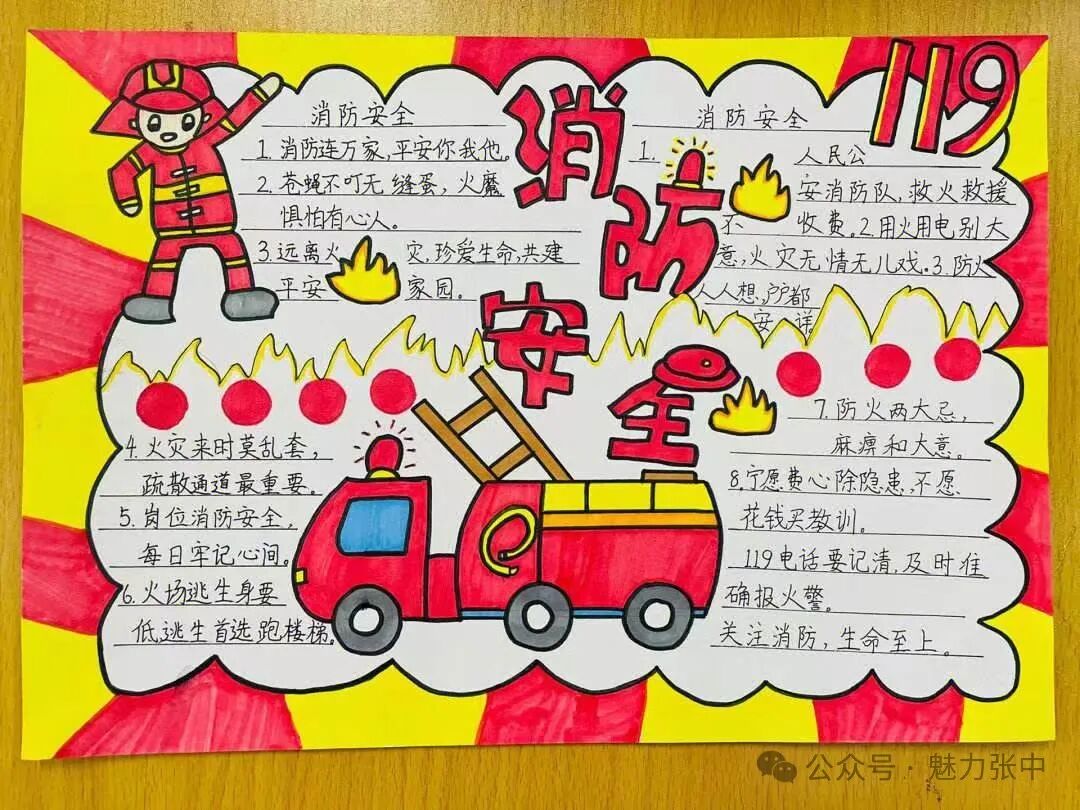 消防安全
1. 消防连万家,平安你我他。
2. 苍蝇不叮无缝蛋,火魔
惧怕有心人。
3. 远离火灾,珍爱生命,共建
平安家园。
消防安全
119
消防安全
1. 人民公
安消防队,救火救援
不收费。2.用火用电别大
意,火灾无情无儿戏.3.防火
人人想,户户都
安详。
4. 火灾来时莫乱套,
疏散通道最重要。
5. 岗位消防安全,
每日牢记心间。
6. 火场逃生身要
低,逃生首选跑楼梯。
7. 防火两大忌,
麻痹和大意。
8.宁愿费心除隐患,不愿
花钱买教训。
119电话要记清,及时准
确报火警。
关注消防,生命至上。
公众号·魅力张中